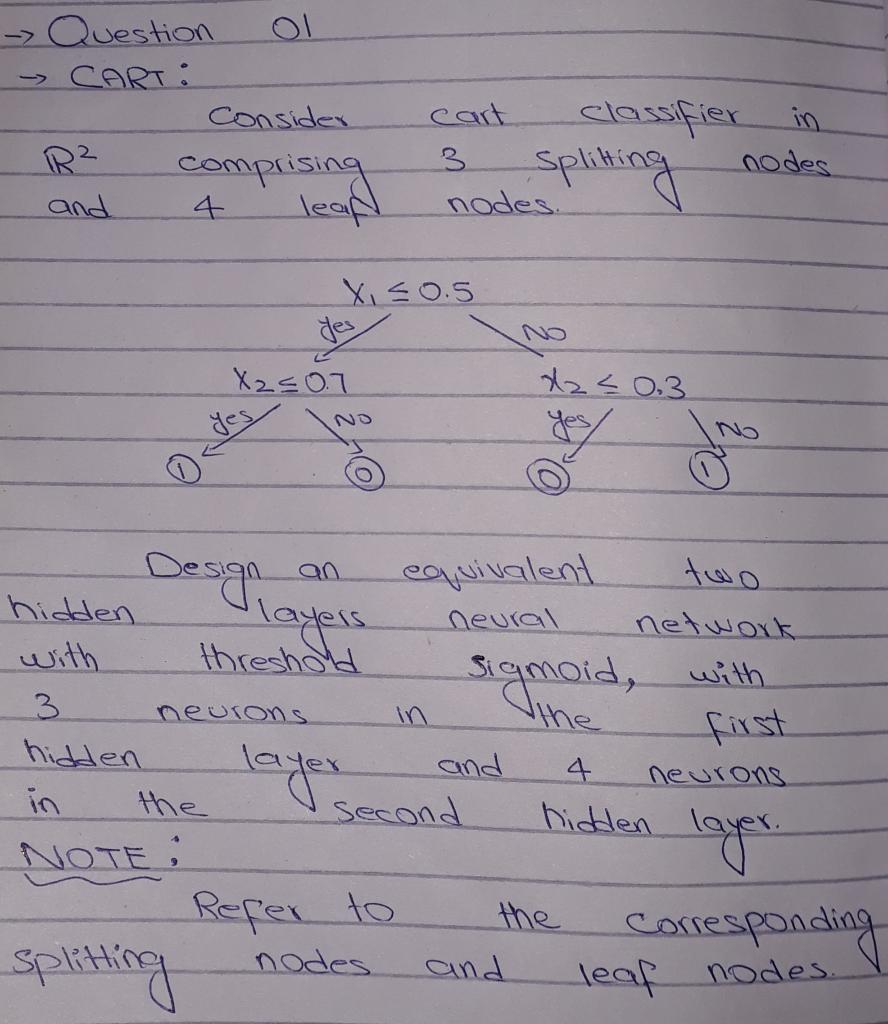 → Question 01
→ CART:
Consider cart classifier in
R² comprising 3 splitting nodes
and 4 leaf nodes.
X₁ ≤ 0.5
yes NO
X₂ ≤ 0.7 X₂ ≤ 0.3
yes NO yes NO
1 0 0 1
Design an equivalent two
hidden layers neural network
with threshold sigmoid, with
3 neurons in the first
hidden layer and 4 neurons
in the second hidden layer.
NOTE:
Refer to the corresponding
splitting nodes and leaf nodes.